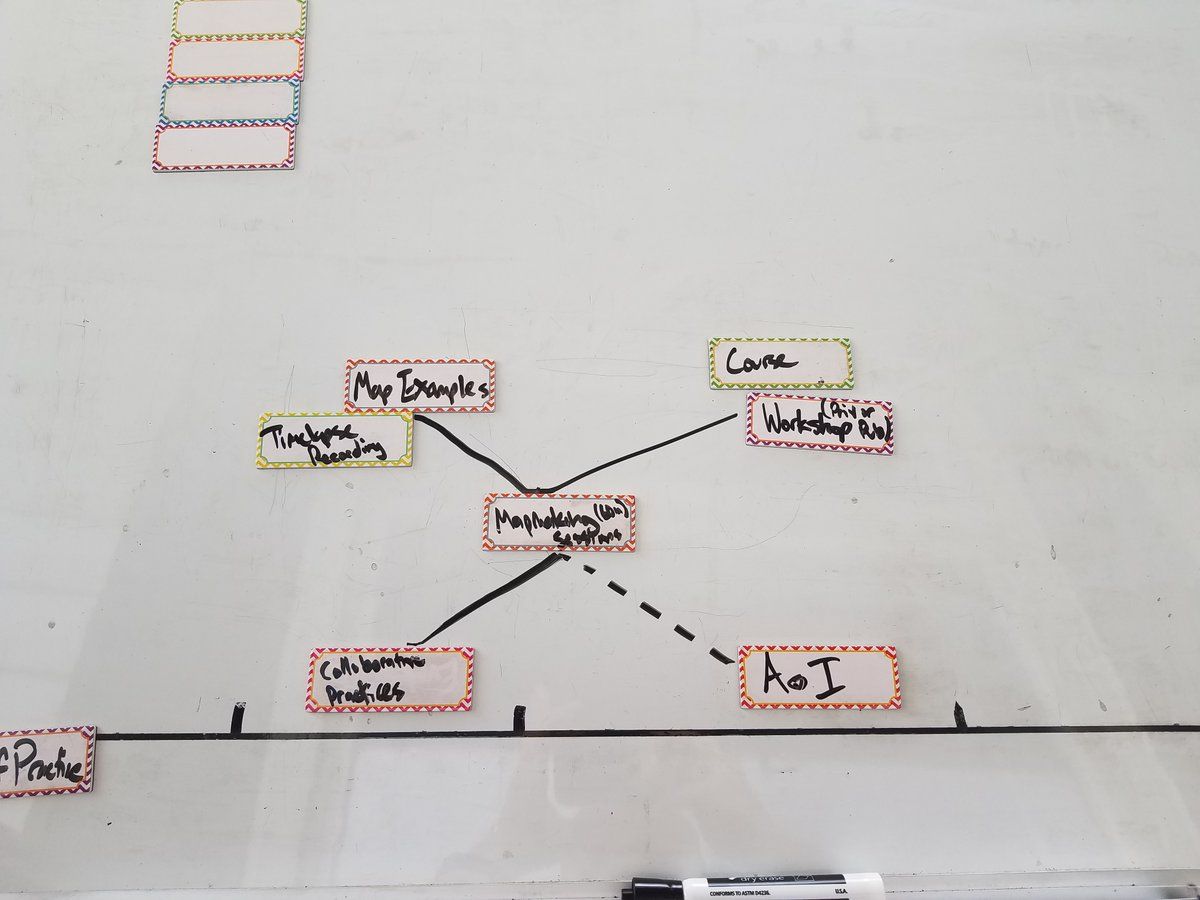 Map Examples
Course
Timelapse
Recording
Workshop (Priv or
Pub)
Mapmaking
Sessions
Collaborative
Practices
A I
f Practice
dry erase
CONFORMS TO ASTM D4236.
U.S.A.